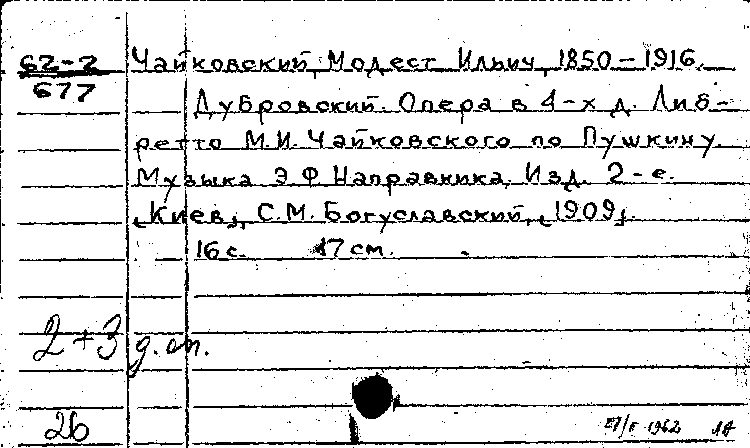 62-2
677
Чайковский, Модест Ильич, 1850-1916.
Дубровский. Опера в 4-х д. Либ-
ретто М.И. Чайковского по Пушкину.
Музыка Э.Ф. Направника. Изд. 2-е.
[Киев], С.М. Богуславский, [1909].
16 с. 17 см.
2+3 д.сп.
26
1962